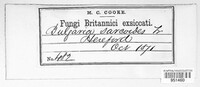 M. C. COOKE.
Fungi Britannici exsiccati.
Bulgaria sarcoides Fr
Hereford
Oct 1871
No.